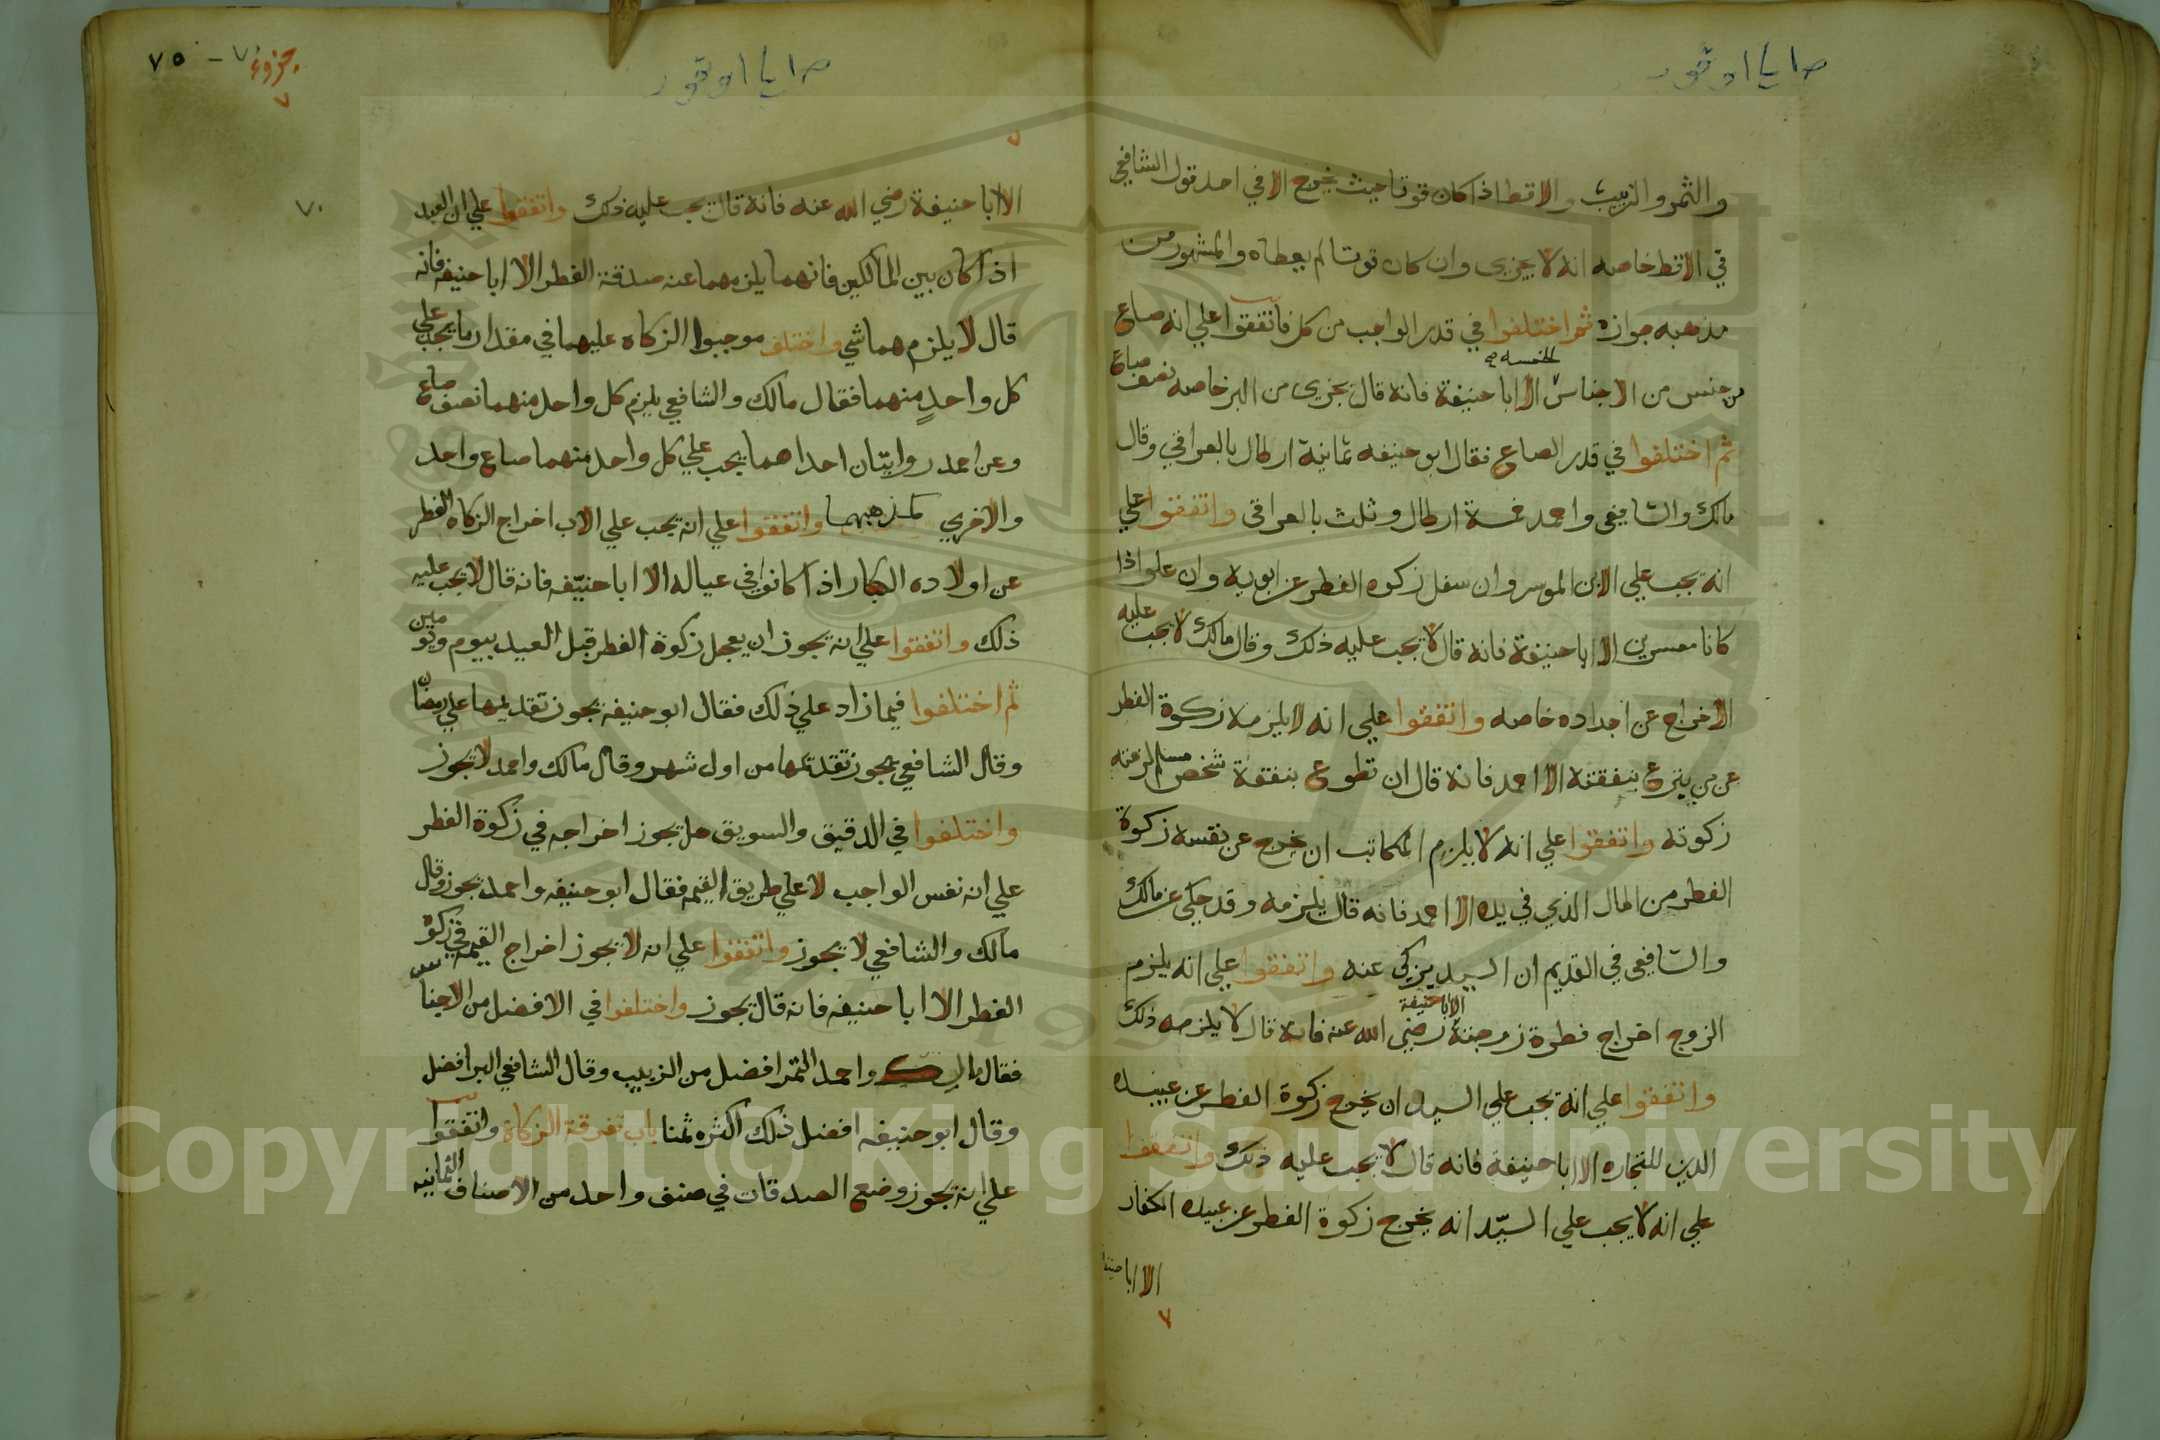 والثمر والزبيب والاقط اذا كان قوتا حيث يخرج الا في احد قول الشافعي
في الاقط خاصه انه لا يجزي وان كان قوتا لم يعطاه والمشهور من
مذهبه جوازه ثم اختلفوا في قدر الواجب من كل فاتفقوا علي انه صاع
من جنس من الاجناس الخمسه الا ابا حنيفة فانه قال يجزي من البر خاصه نصف صاع
ثم اختلفوا في قدر الصاع فقال ابو حنيفه ثمانية ارطال بالعراقي وقال
مالك والشافعي واحمد خمسة ارطال وثلث بالعراقي واتفقوا علي
انه يجب علي الابن الموسر وان سفل زكوه الفطر عن ابويه وان علو اذا
كانا معسرين الا ابا حنيفة فانه قال لا يجب عليه ذلك وقال مالك لا يجب عليه
الاخراج عن اجداده خاصه واتفقوا علي انه لا يلزمه زكوة الفطر
عن من يتبرع بنفقته الا احمد فانه قال ان تطوع بنفقة شخص مسلم لزمته
زكوته واتفقوا علي انه لا يلزم المكاتب ان يخرج عن نفسه زكوة
الفطر من المال الذي في يده الا احمد فانه قال يلزمه وقد حكي عن مالك
والشافعي في القديم ان السيد يزكي عنه واتفقوا علي انه يلزم
الزوج اخراج فطرة زوجته الا ابا حنيفة رضي الله عنه فانه قال لا يلزمه ذلك
واتفقوا علي انه يجب علي السيد ان يخرج زكوة الفطر عن عبيده
الذين للتجاره الا ابا حنيفة فانه قال لا يجب عليه ذلك واتفقوا
علي انه لا يجب علي السيّد انه يخرج زكوة الفطر عن عبيده الكفار
الا ابا حنيفه
٧
٧٥ - ٧٠
جزوء
٧
٧
٧٠
الا ابا حنيفة رضي الله عنه فانه قال يجب عليه ذلك واتفقوا علي ان العبد
اذا كان بين المالكين فانهما يلزمهما عنه صدقة الفطر الا ابا حنيفه فانه
قال لا يلزمهما شي واختلف موجبوا الزكاه عليهما في مقدار ما يجب علي
كل واحدٍ منهما فقال مالك والشافعي يلزم كل واحد منهما نصف صاع
وعن احمد روايتان احداهما يجب علي كل واحد منهما صاع واحد
والاخري كمذهبهما واتفقوا علي انه يجب علي الاب اخراج الزكاه الفطر
عن اولاده الكبار اذا كانوا في عياله الا ابا حنيفه فانه قال لا يجب عليه
ذلك واتفقوا علي انه يجوز ان يعجل زكوة الفطر قبل العيد بيوم ويومين
ثم اختلفوا فيما زاد علي ذلك فقال ابو حنيفه يجوز تقديمها علي رمضان
وقال الشافعي يجوز تقديمها من اول شهر وقال مالك واحمد لا يجوز
واختلفوا في الدقيق والسويق هل يجوز اخراجه في زكوة الفطر
علي انه نفس الواجب لا علي طريق القيمه فقال ابو حنيفه واحمد يجوز وقال
مالك والشافعي لا يجوز واتفقوا علي انه لا يجوز اخراج القيمه في زكوة
الفطر الا ابا حنيفه فانه قال يجوز واختلفوا في الافضل من الاجناس
فقال مالك واحمد التمر افضل من الزبيب وقال الشافعي البر افضل
وقال ابو حنيفه افضل ذلك اكثره ثمنا باب تفرقة الزكاة واتفقوا
علي انه يجوز وضع الصدقات في صنف واحد من الاصناف الثمانيه
Copyright © King Saud University